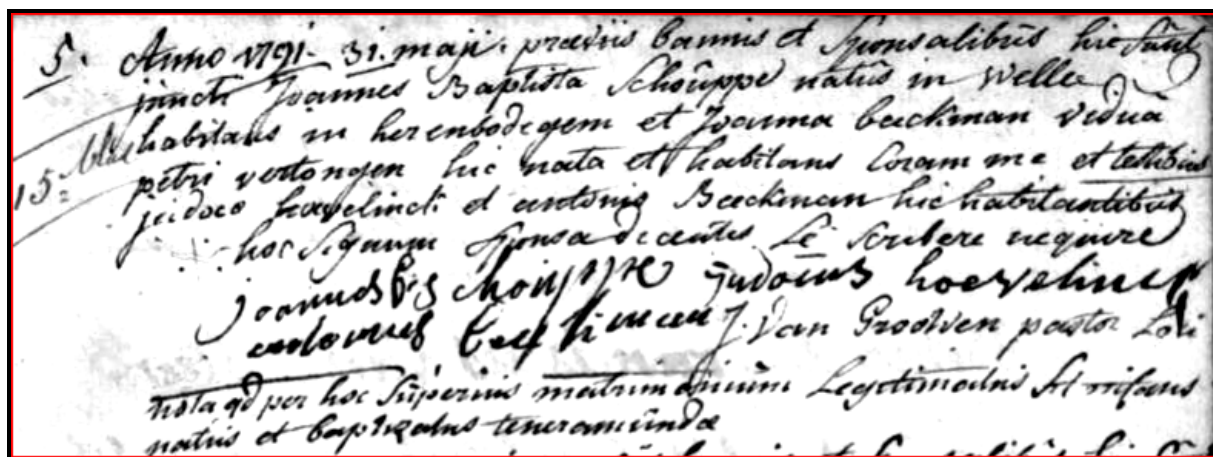 5. Anno 1791. 31. maji. præviis bannis et sponsalibus hic sunt
juncti Joannes Baptista Schouppe natus in Welle
habitans in herenbodegem et Joanna beeckman vidua
petri vertongen hic nata et habitans Coram me et testibus
15. judoco havelinck et antonio Beeckman hic habitantibus
hoc signum sponsa decentis se scribere nequire
joannes Bts schouppe judocus hoevelinck
antonius beeckman J. Van Grootven pastor Loci
nota qd per hoc superius matrimonium Legitimatus sit infans
natus et baptizatus teneramundæ